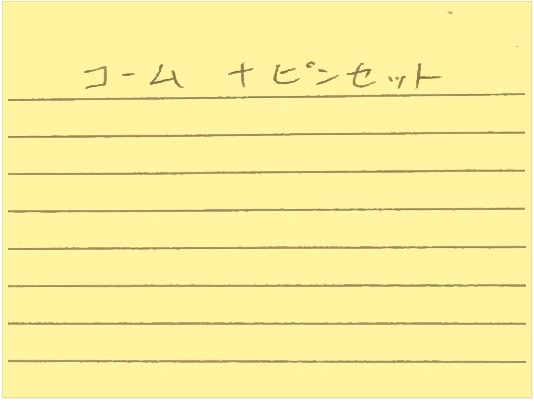 コーム +ピンセット